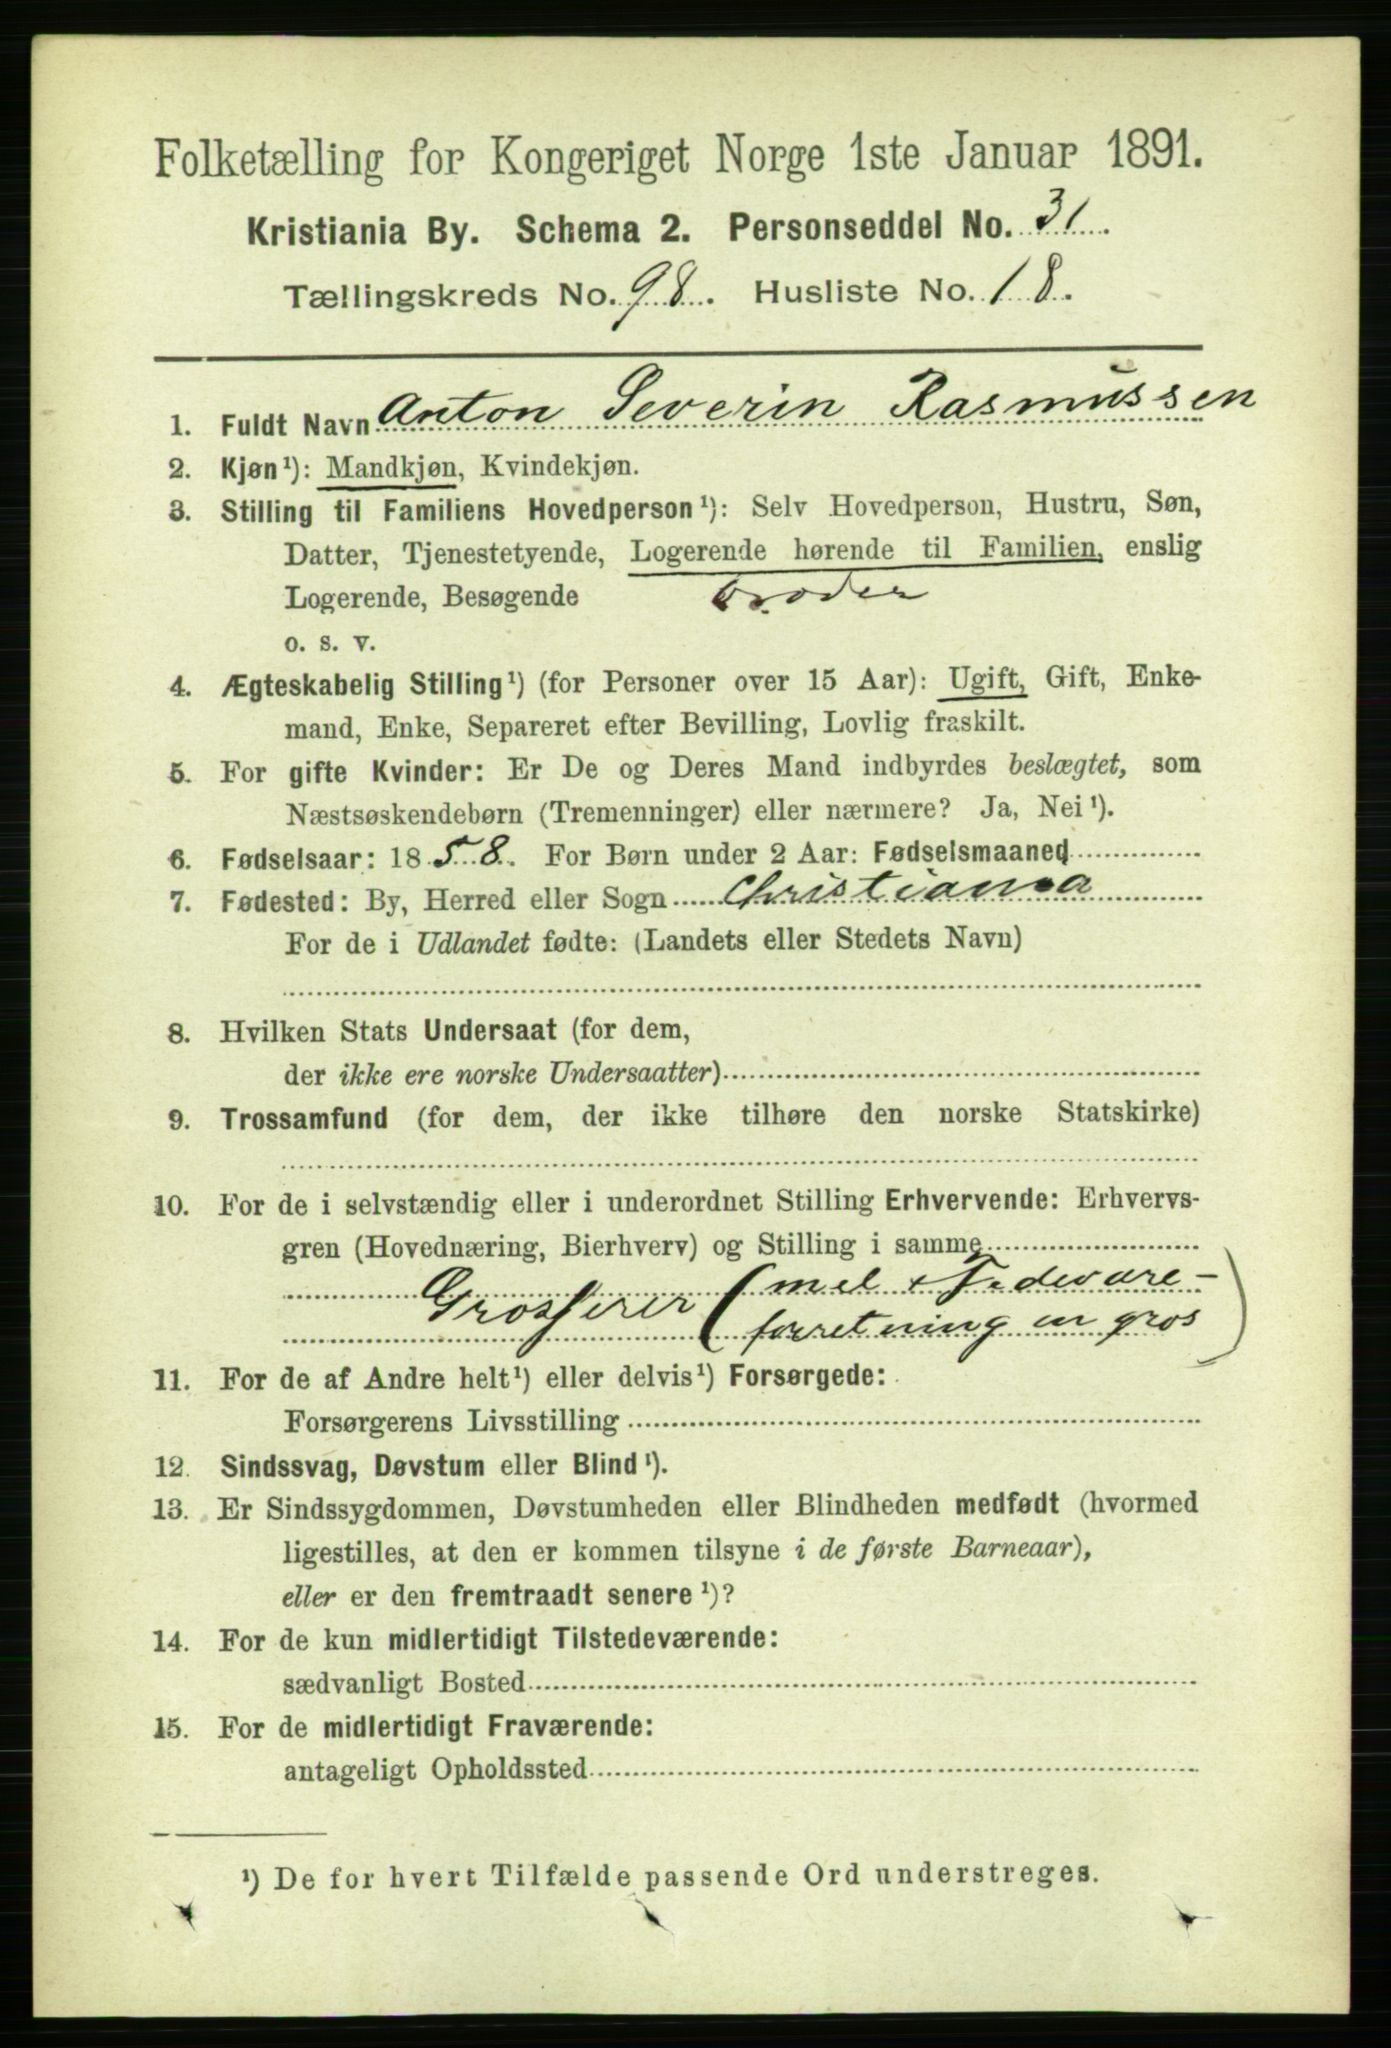 Folketælling for Kongeriget Norge 1ste Januar 1891.
Kristiania By. Schema 2. Personseddel No. 31.
Tællingskreds No. 98. Husliste No. 18.
1. Fuldt Navn Anton Severin Rasmussen
2. Kjøn¹): Mandkjøn, Kvindekjøn.
3. Stilling til Familiens Hovedperson¹): Selv Hovedperson, Hustru, Søn,
Datter, Tjenestetyende, Logerende hørende til Familien, enslig
Logerende, Besøgende Broder
o. s. v.
4. Ægteskabelig Stilling¹) (for Personer over 15 Aar): Ugift, Gift, Enke-
mand, Enke, Separeret efter Bevilling, Lovlig fraskilt.
5. For gifte Kvinder: Er De og Deres Mand indbyrdes beslægtet, som
Næstsøskendebørn (Tremenninger) eller nærmere? Ja, Nei¹).
6. Fødselsaar: 1858. For Børn under 2 Aar: Fødselsmaaned
7. Fødested: By, Herred eller Sogn Christiania
For de i Udlandet fødte: (Landets eller Stedets Navn)
8. Hvilken Stats Undersaat (for dem,
der ikke ere norske Undersaatter)
9. Trossamfund (for dem, der ikke tilhøre den norske Statskirke)
10. For de i selvstændig eller i underordnet Stilling Erhvervende: Erhvervs-
gren (Hovednæring, Bierhverv) og Stilling i samme
Grosserer (mel + Fedevare-
forretning en gros)
11. For de af Andre helt¹) eller delvis¹) Forsørgede:
Forsørgerens Livsstilling
12. Sindssvag, Døvstum eller Blind¹).
13. Er Sindssygdommen, Døvstumheden eller Blindheden medfødt (hvormed
ligestilles, at den er kommen tilsyne i de første Barneaar),
eller er den fremtraadt senere¹)?
14. For de kun midlertidigt Tilstedeværende:
sædvanligt Bosted
15. For de midlertidigt Fraværende:
antageligt Opholdssted
¹) De for hvert Tilfælde passende Ord understreges.